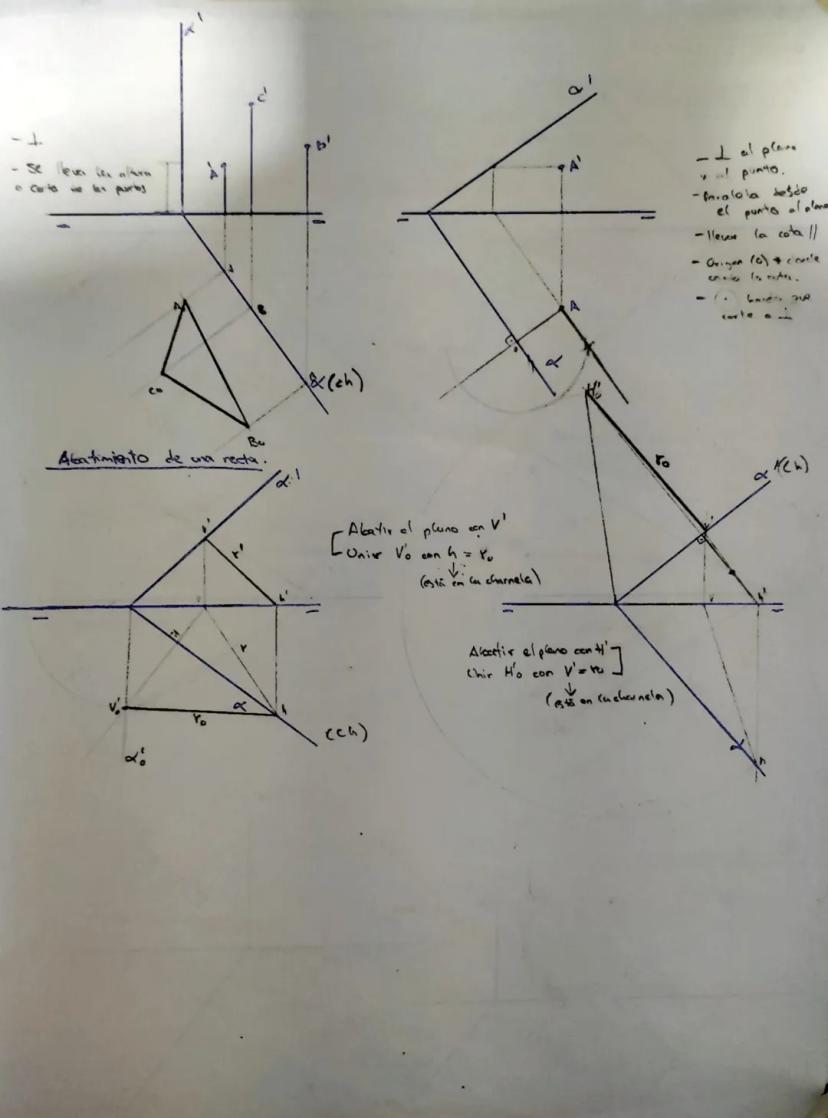 α'
C'
B'
A'
- ⊥
- Se llevan las altura
o cota de los puntos
A
B
A
Co
Bo
α(ch)
α'
A'
A
α
- ⊥ al plano
y al punto.
- Paralela desde
el punto al plano
- llevar la cota //
- Origen (0)
corte a ⊥
Abatimiento de una recta.
α'
V'
r'
h'
r
V'o
ro
α
h
(ch)
α'o
Abatir el plano con V'
Unir V'o con h = ro
↓
(está en la charnela)
H'o
ro
α'(ch)
V'
h'
Abatir el plano con H'
Unir H'o con V' = ro
↓
(está en la charnela)
α
h